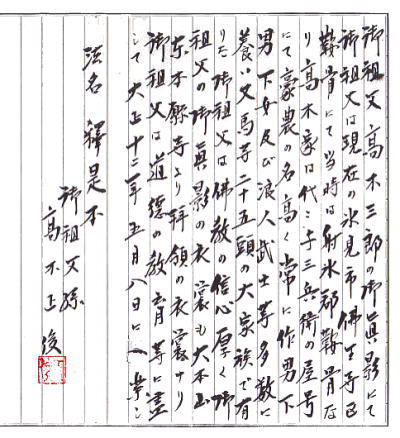 御祖父高木三郎の御眞影にて
御祖父は現在の氷見市佛生寺区
鞍骨にて当時は射水郡鞍骨な
り高木家は代々与三兵衛の屋号
にて豪農の名高く常に作男下
男下女及び浪人武士等多数に
養い又馬等二十五頭の大家族で有
りた御祖父は佛教の信心厚く御
祖父の御眞影の衣裳も大本山
東本願寺より拜領の衣裳なり
御祖父は道徳の教育等に盡
して大正十二年五月八日に
法名 釋是不
御祖父孫
高木正俊